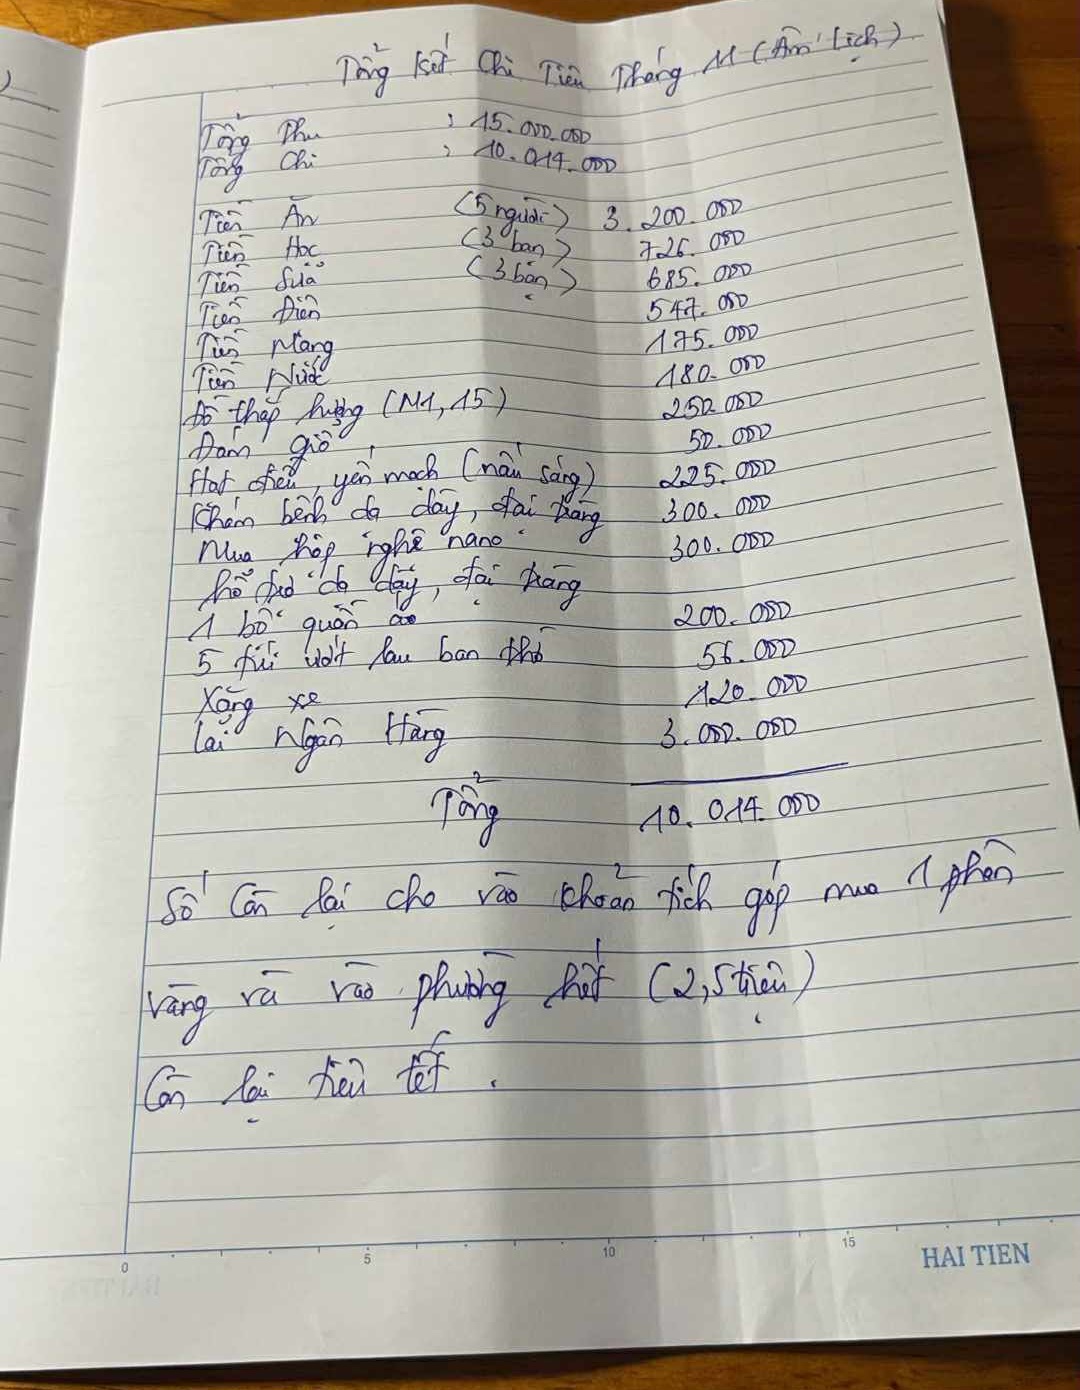 Tổng kết Chi Tiêu Tháng 11 (Âm lịch)
Tổng Thu : 15.000.000
Tổng Chi : 10.014.000
Tiền Ăn (5 người) 3.200.000
Tiền Học (3 bạn) 726.000
Tiền Sữa (3 bạn) 685.000
Tiền Điện 547.000
Tiền Mạng 175.000
Tiền Nước 180.000
Đồ thắp hương (M1, 15) 250.000
Đám giỗ 50.000
Hạt điều, yến mạch (nấu sáng) 225.000
Khám bệnh dạ dày, đại tràng 300.000
Mua hộp nghệ nano 300.000
hỗ trợ dạ dày, đại tràng
1 bộ quần áo 200.000
5 túi ướt lau ban thờ 56.000
Xăng xe 120.000
Lãi Ngân Hàng 3.000.000
Tổng 10.014.000
Số Còn lại cho vào khoản tích góp mua 1 phân
vàng và vào phường hết (2,5 triệu)
Còn lại tiêu tết.
0 5 10 15
HAI TIEN